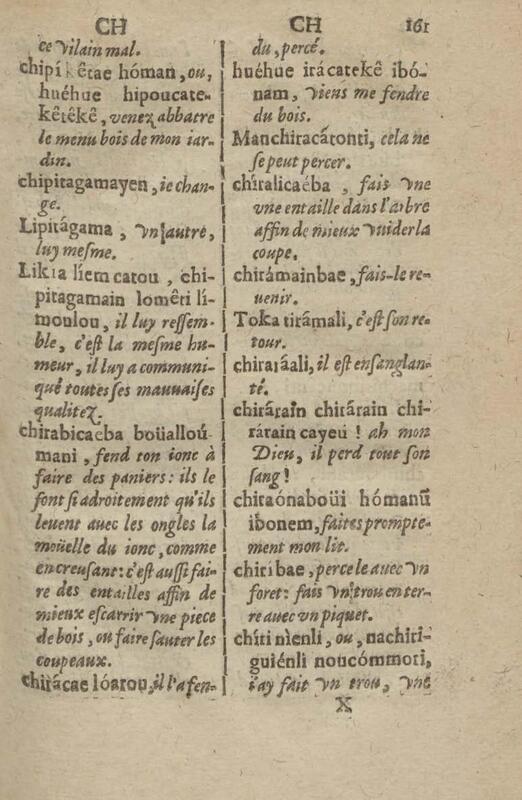 CH
ce vilain mal.
chipí kêtae hóman, ou,
huéhue hipoucate-
kêtêkê, venez abbatre
le menu bois de mon iar-
din.
chipitagamayen, ie chan-
ge.
Lipitágama, vn autre,
luy mesme.
Likia líem catou, chi-
pitagamain lomêti lí-
moulou, il luy ressem-
ble, c'est la mesme hu-
meur, il luy a communi-
qué toutes ses mauuaises
qualitez.
chirabicaeba boüalloú
mani, fend ton ionc à
faire des paniers: ils le
font si adroitement qu'ils
leuent auec les ongles la
moüelle du ionc, comme
en creusant: c'est aussi fai-
re des entailles affin de
mieux escarrir vne piece
de bois, ou faire sauter les
coupeaux.
chirácae lóarou, il l'a fen-
CH 161
du, percé.
huéhue irácatekê ibó-
nam, viens me fendre
du bois.
Manchiracátonti, cela ne
se peut percer.
chíralicaéba, fais vne
vne entaille dans l'arbre
affin de mieux vuider la
coupe.
chirámainbae, fais-le re-
uenir.
Toka tirámali, c'est son re-
tour.
chiraráali, il est ensanglan-
té.
chirárain chirárain chi-
rárain cayeu! ah mon
Dieu, il perd tout son
sang!
chiraónaboüi hómanũ
ibonem, faites prompte-
ment mon lit.
chiríbae, perce le auec vn
foret: fais vn trou en ter-
re auec vn piquet.
chíti nienli, ou, nachiri-
guiénli noucómmoti,
i'ay fait vn trou, vne
X